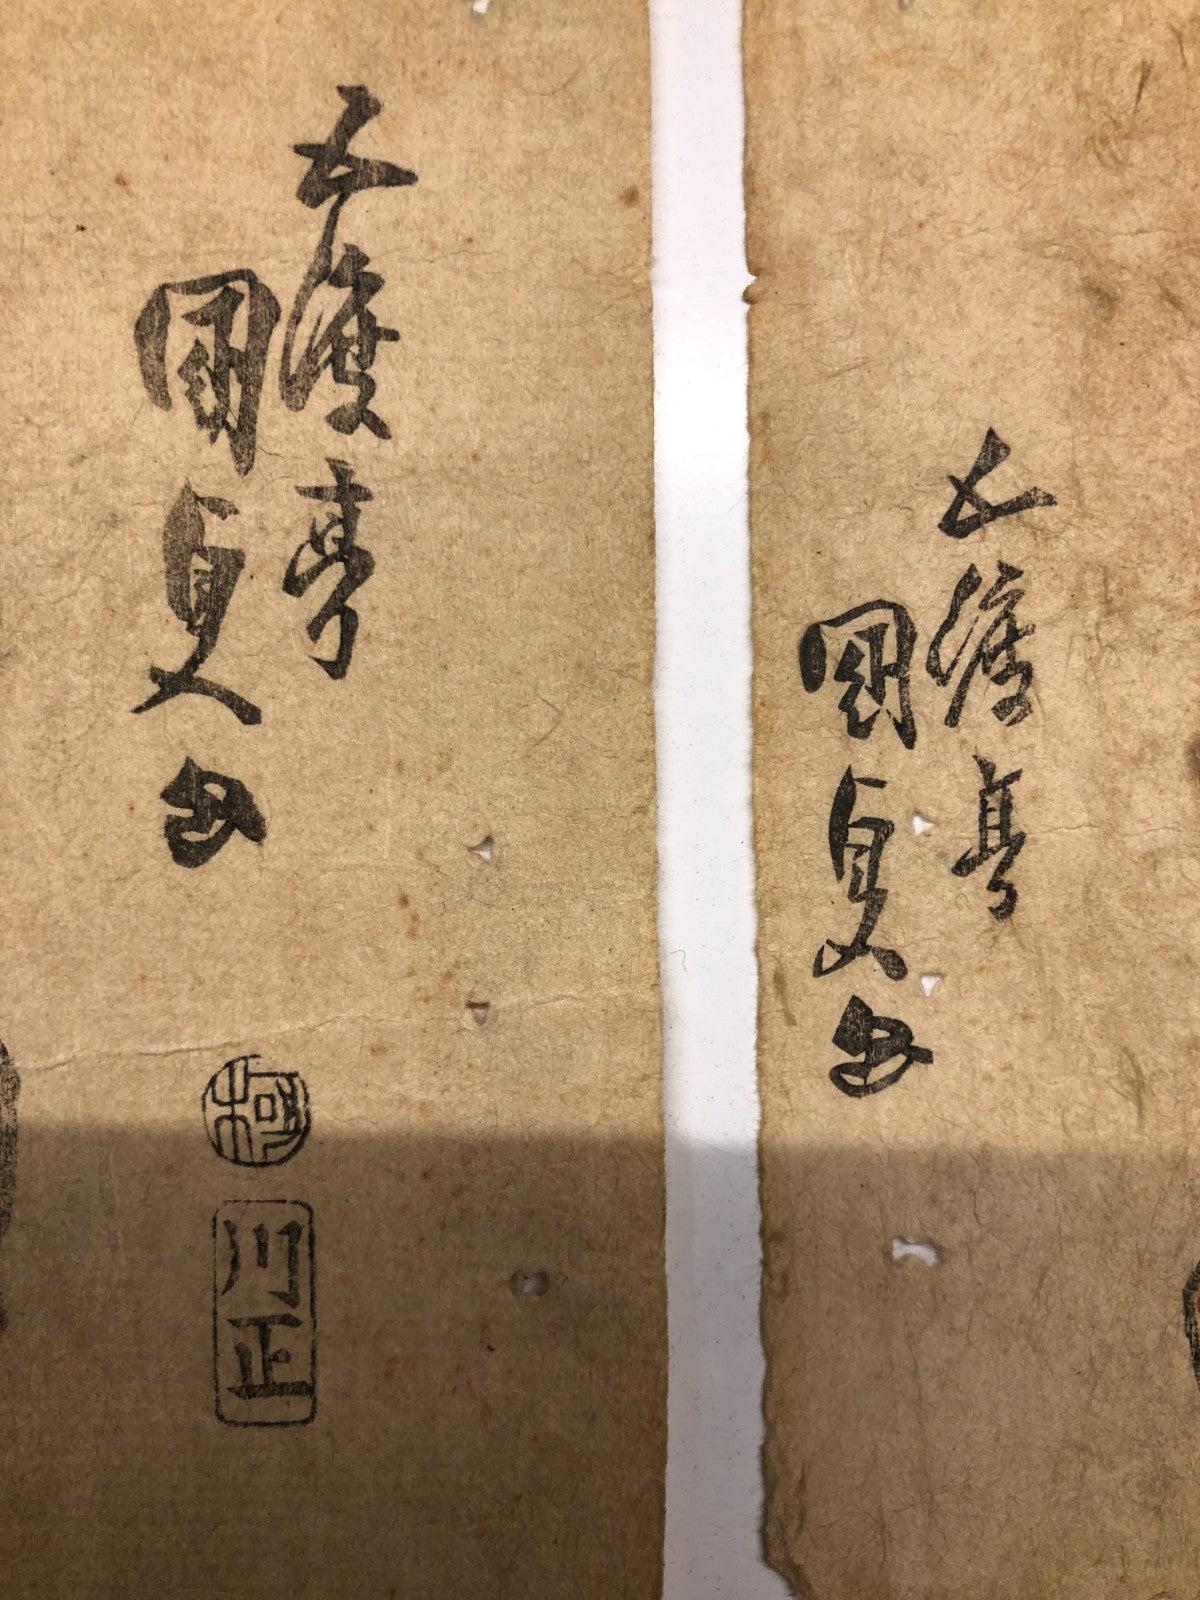 五渡亭
國貞画
五渡亭
國貞画
極
川正